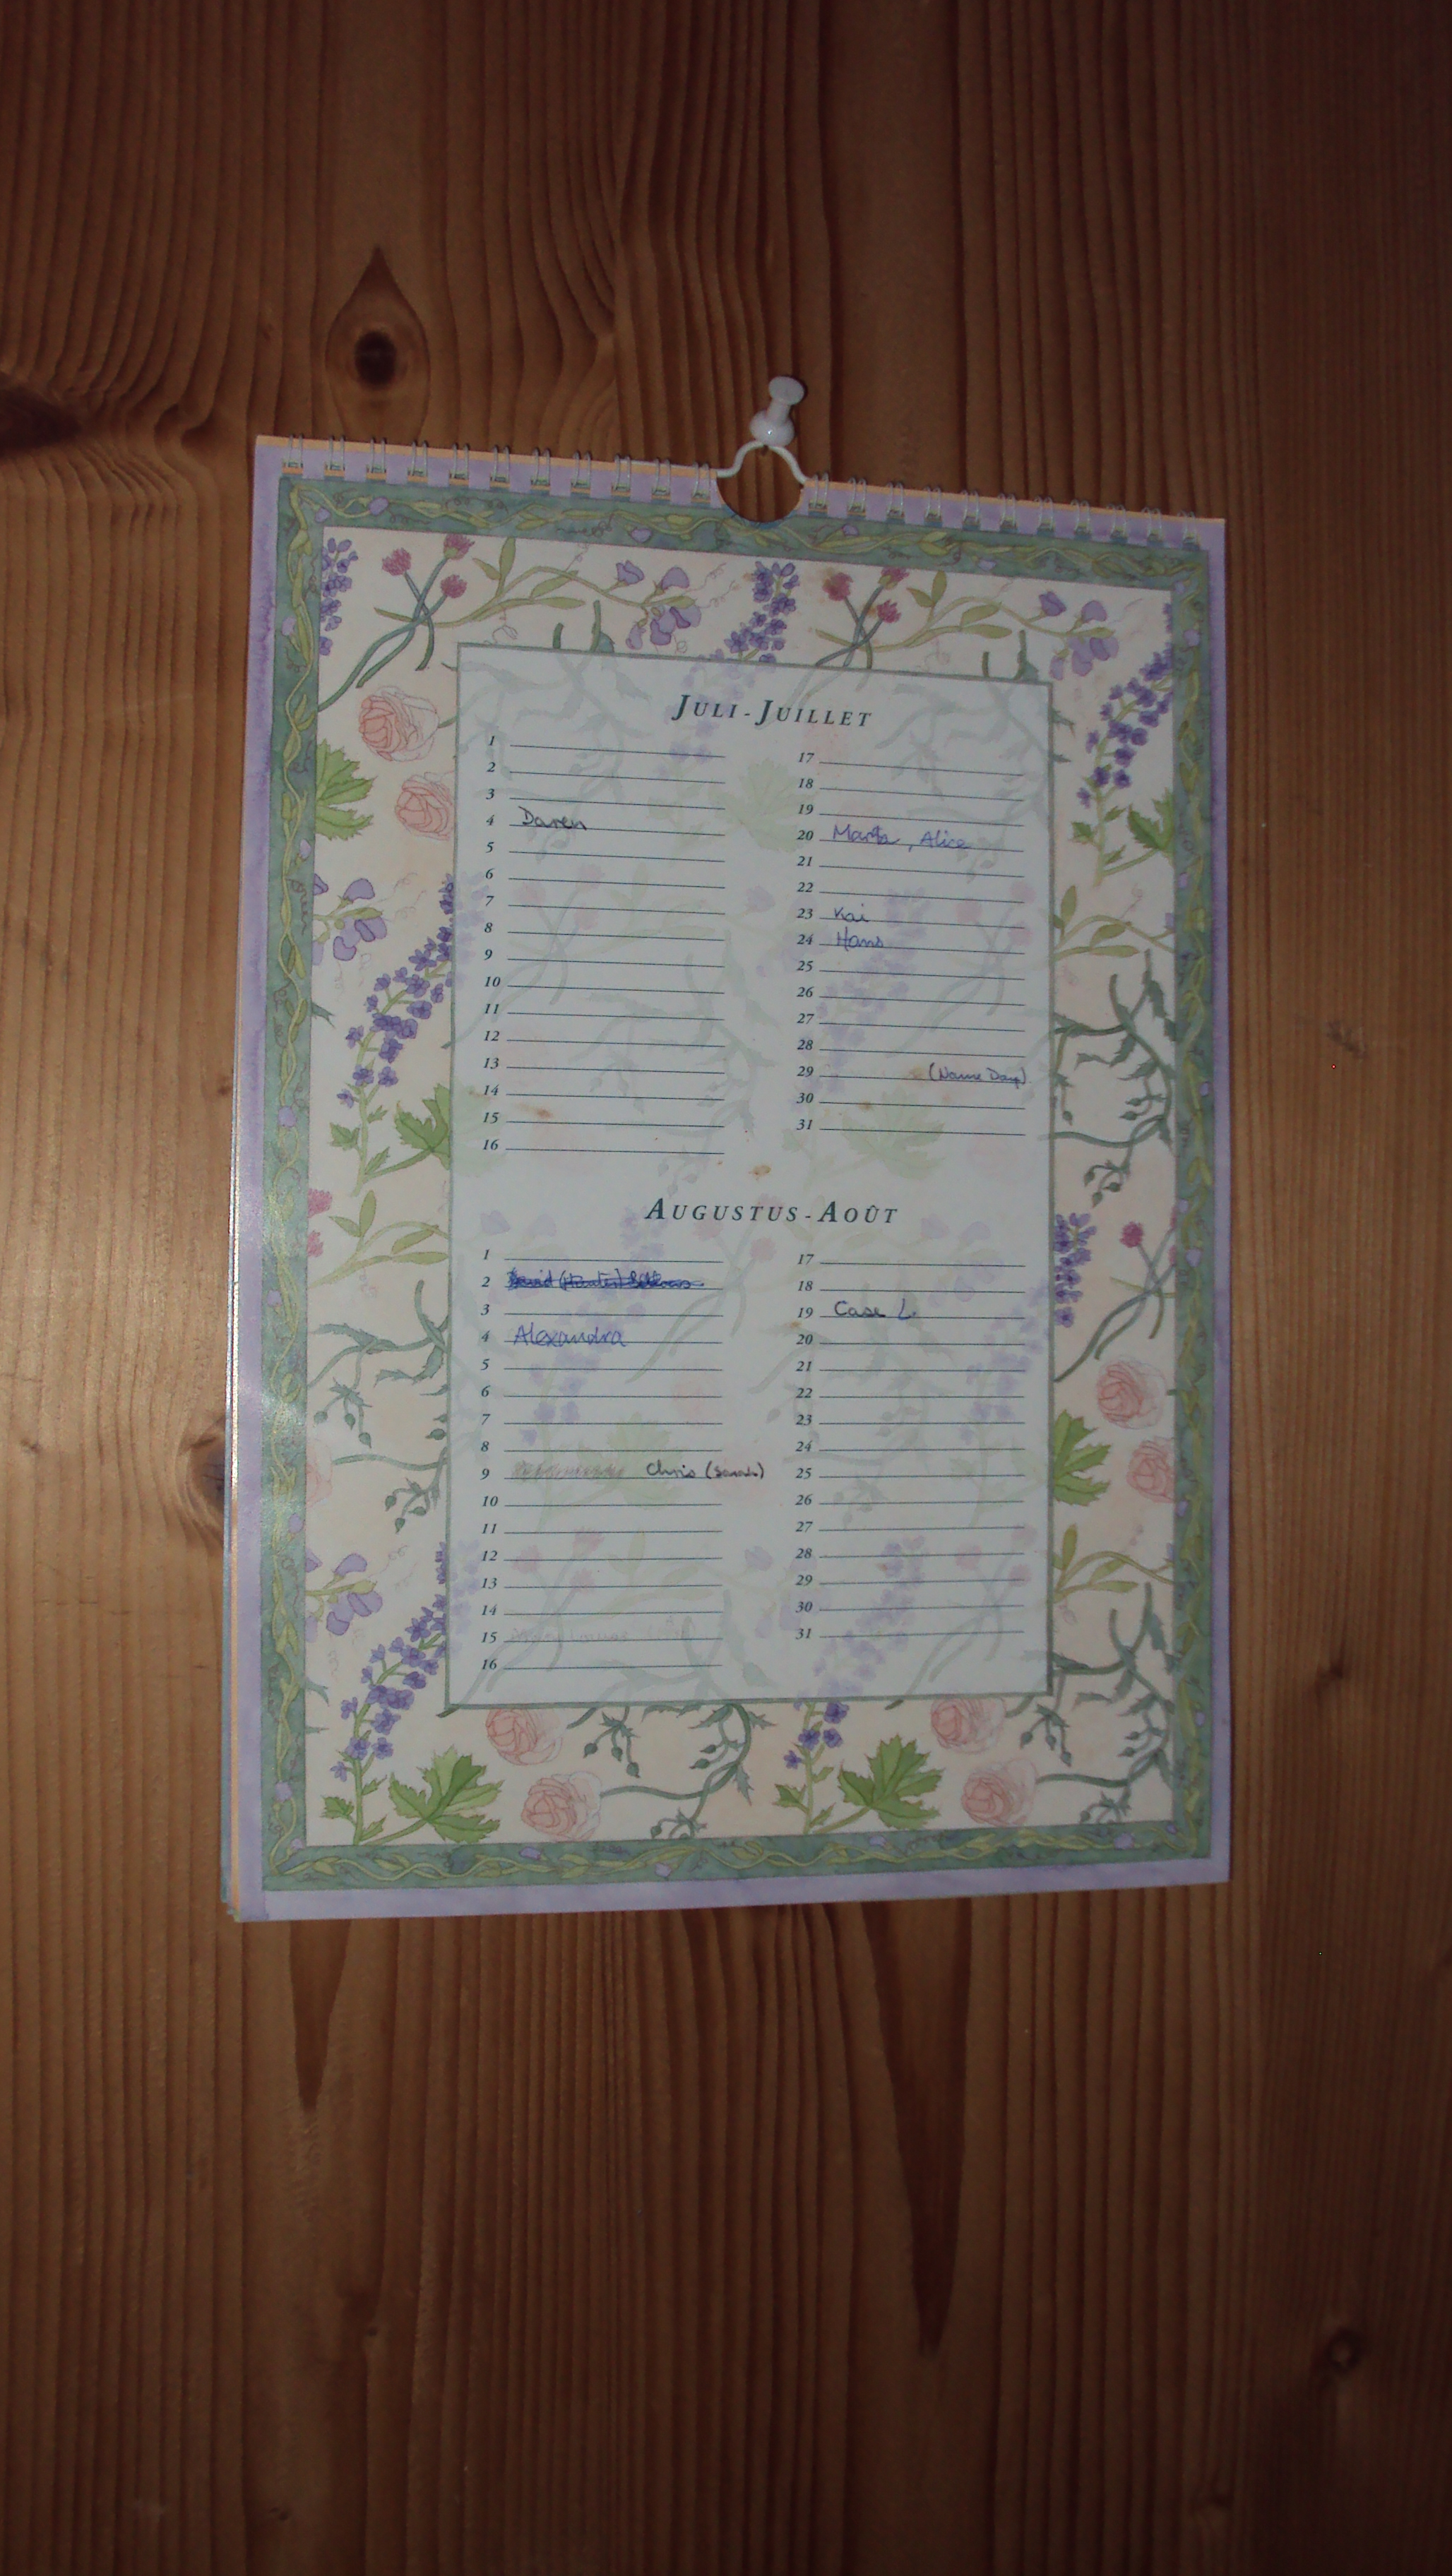 JULI-JUILLET
1
2
3
4 Daren
5
6
7
8
9
10
11
12
13
14
15
16
17
18
19
20 Marta, Alice
21
22
23 Kai
24 Hans
25
26
27
28
29 (Name Day)
30
31
AUGUSTUS-AOÛT
1
2 David
3
4 Alexandra
5
6
7
8
9 Chris (Sarah)
10
11
12
13
14
15
16
17
18
19 Case L.
20
21
22
23
24
25
26
27
28
29
30
31